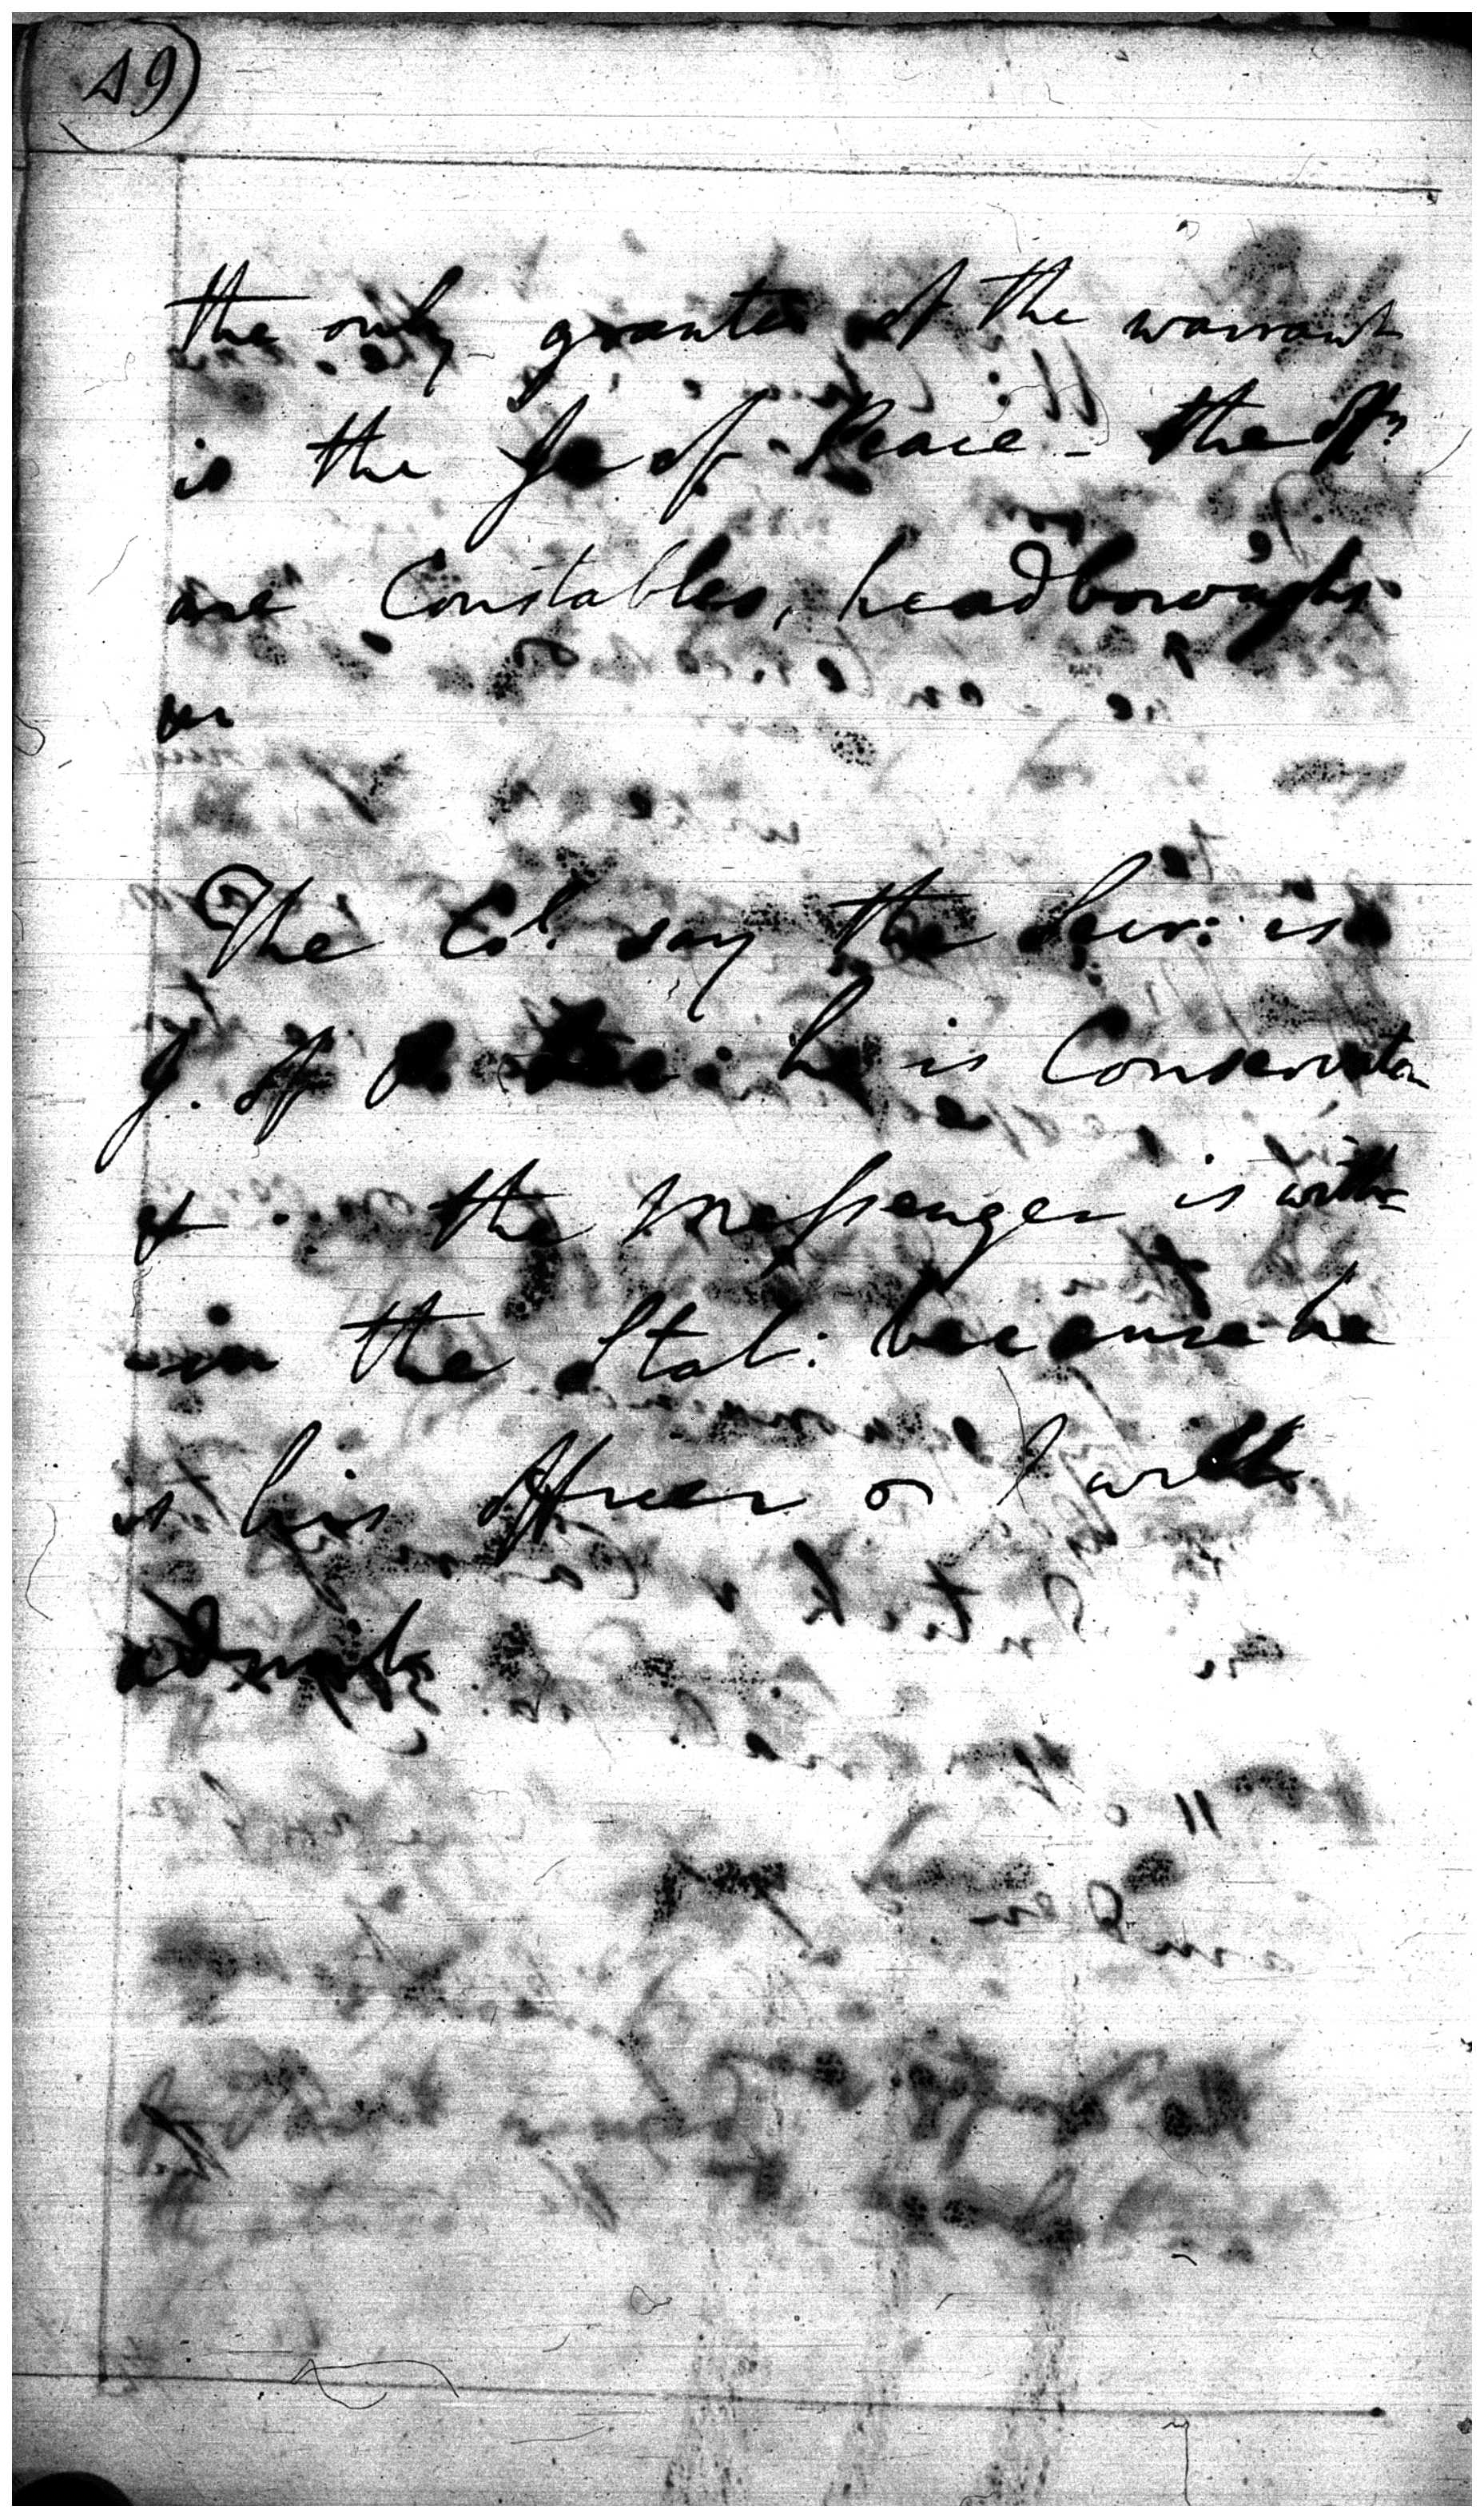 49)
the only granter of the warrant
is the J. of Peace - the Offrs
are Constables, headboroughs
or
The Col. say the Secr: is
J. of Peace: he is Conservator
of the Messenger is with-
-in the Stat: because he
is his Officer or I will